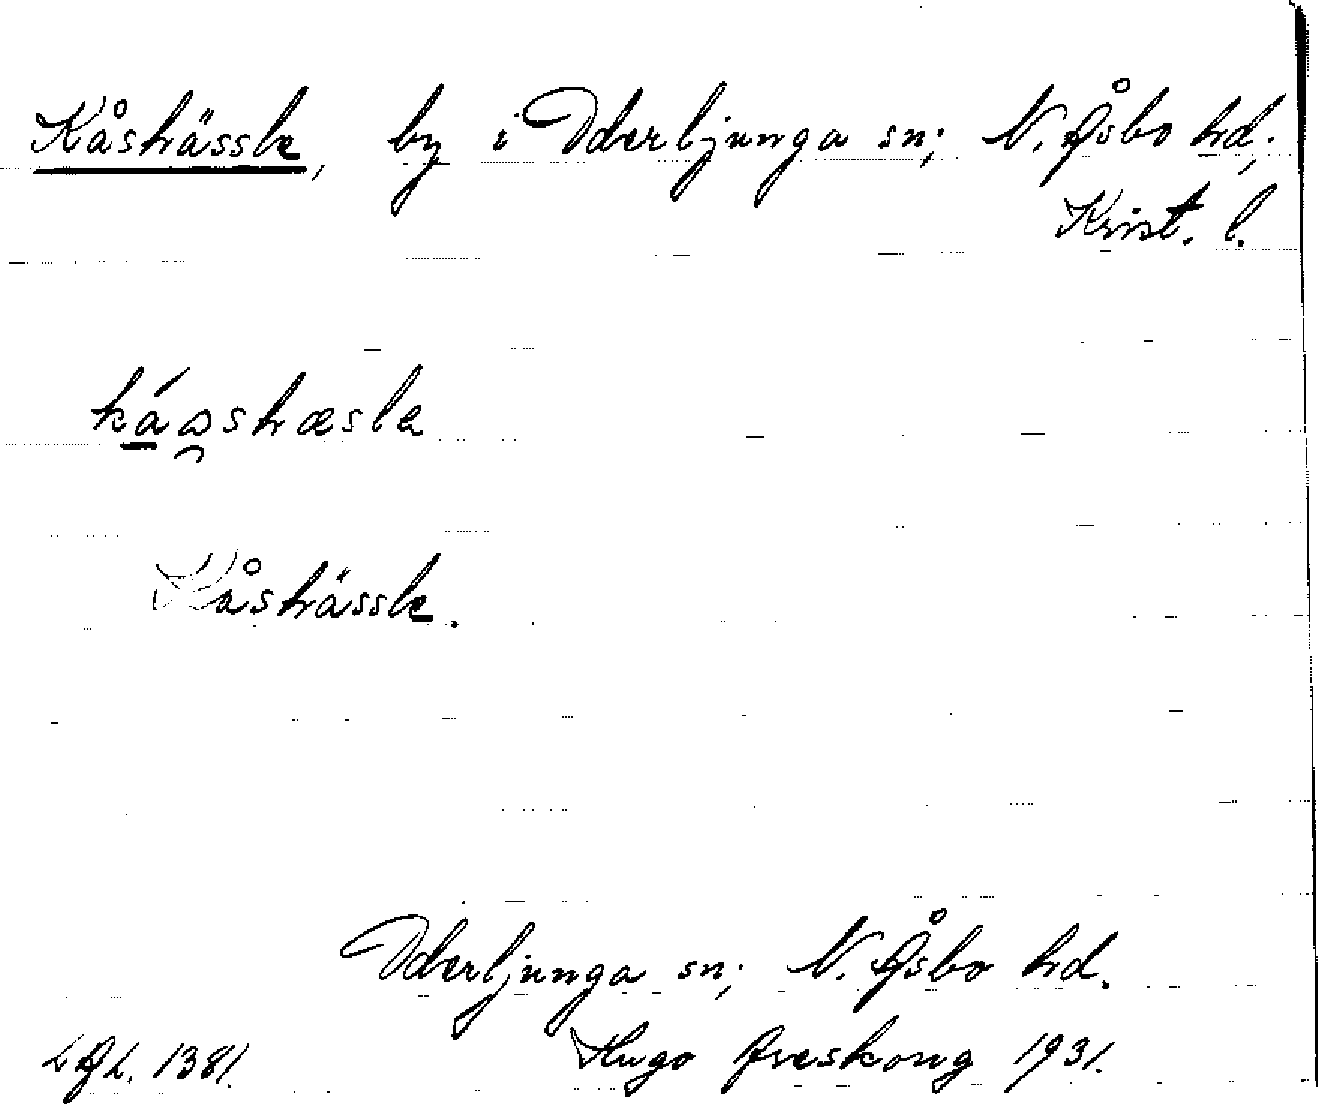 Kåshässle, by i Oderljunga sn; N. Åsbo hd;
Krist. l.
Kåshässle.
Oderljunga sn; N. Åsbo hd.
Hugo Areskoug 1931.
LAL. 1381.